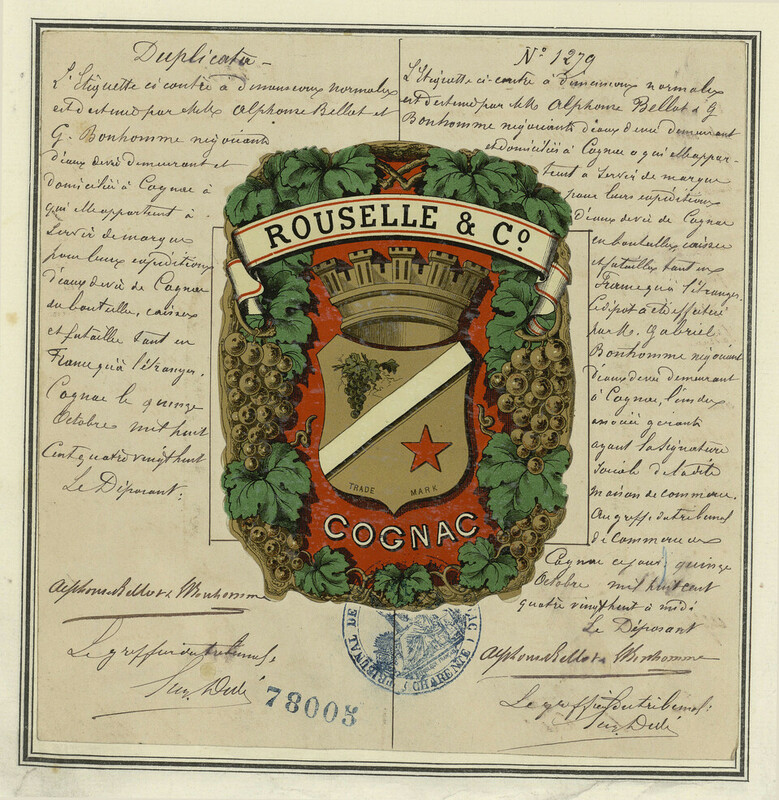 Duplicata
L'Etiquette ci contre à dimensions normales
est destinée par MM. Alphonse Bellot et
G. Bonhomme négociants
d'eaux de vie demeurant et
domiciliés à Cognac à
qui elle appartient à
servir de marque
pour leurs expéditions
d'eaux de vie de Cognac
en bouteille, caisses
et futaille tant en
France qu'à l'étranger.
Cognac le quinze
Octobre mil huit
Cent quatre vingt huit
Le Déposant:
Alphonse Bellot & Bonhomme
Le greffier du tribunal
78005
ROUSELLE & Co.
TRADE MARK
COGNAC
TRIBUNAL DE
CHARENTE
No 1279
L'Etiquette ci-contre à dimensions normales
est destinée par MM. Alphonse Bellot & G.
Bonhomme négociants d'eaux de vie demeurant
et domiciliés à Cognac à qui elle appar-
tient à servir de marque
pour leurs expéditions
d'eaux de vie de Cognac
en bouteilles, caisses
et futailles tant en
France qu'à l'étranger.
Le dépôt a été effectué
par M. Gabriel
Bonhomme négociant
d'eaux de vie demeurant
à Cognac, l'un des
associés gérants
ayant la signature
sociale de la dite
maison de commerce.
Au greffe du tribunal
de Commerce de
Cognac ce jour quinze
Octobre mil huit cent
quatre vingt huit à midi
Le Déposant
Alphonse Bellot & Bonhomme
Le greffier du tribunal: